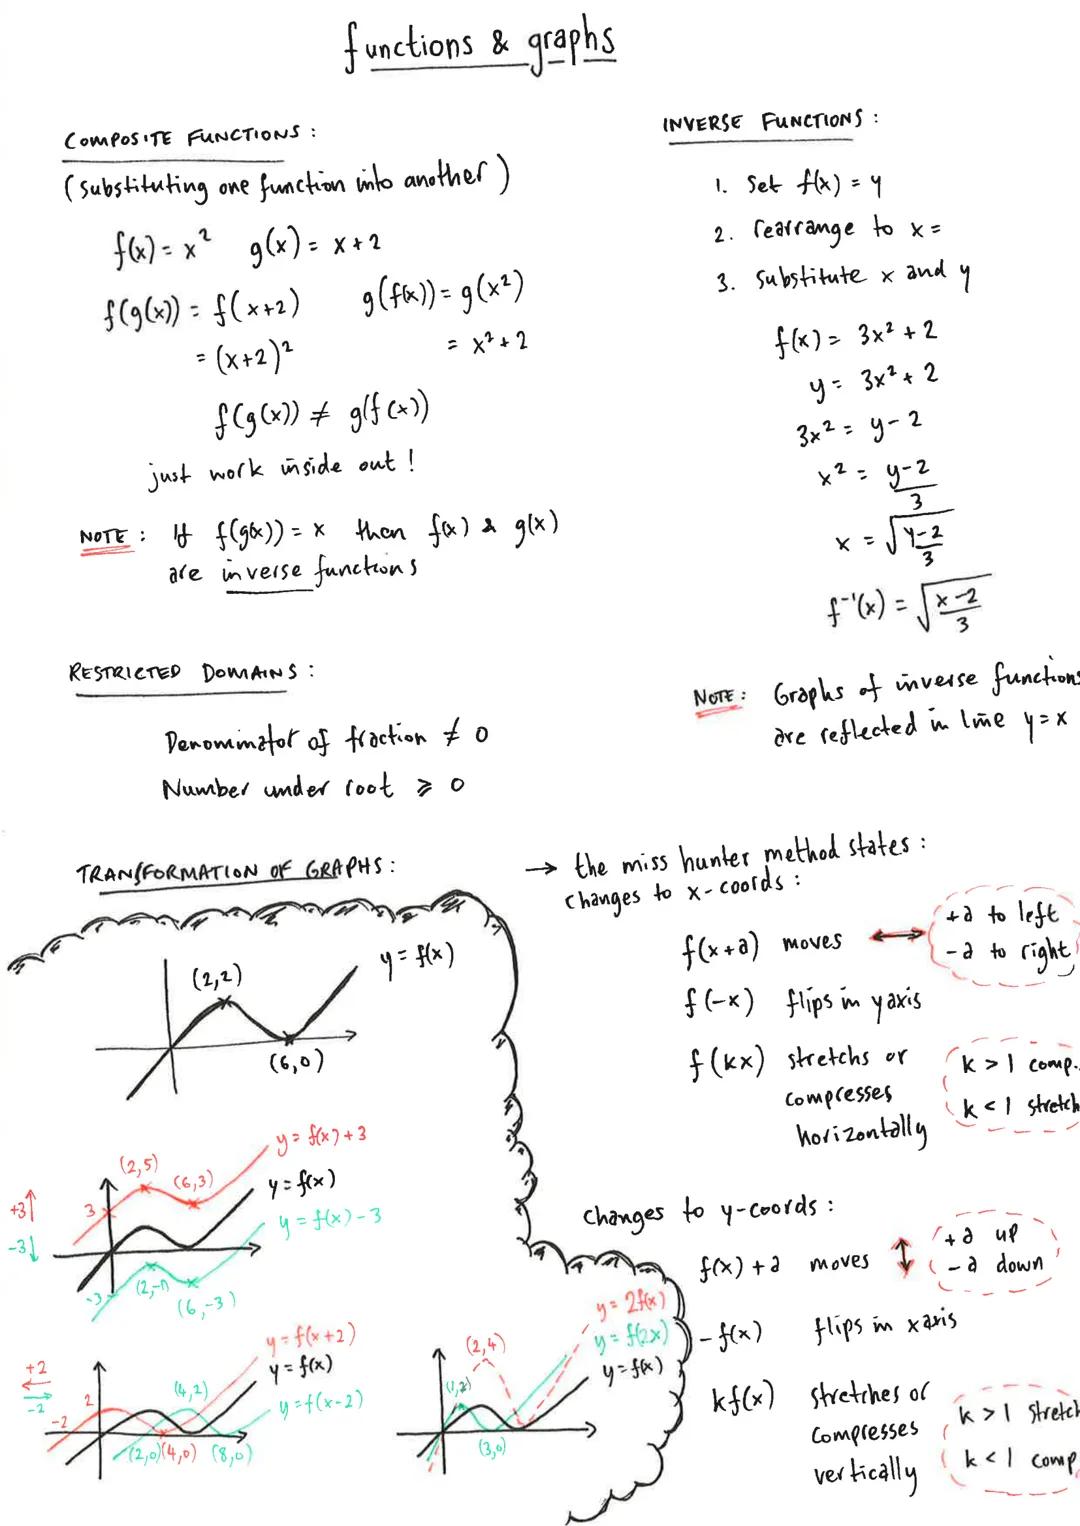 functions & graphs
COMPOSITE FUNCTIONS :
(substituting one function into another)
f(x) = x² g(x) = x+2
f(g(x)) = f(x+2) g(f(x)) = g(x²)
= (x+2)² = x²+2
f(g(x)) ≠ g(f(x))
just work inside out !
NOTE : If f(g(x)) = x then f(x) & g(x)
are inverse functions
INVERSE FUNCTIONS :
1. Set f(x) = y
2. rearrange to x =
3. substitute x and y
f(x) = 3x² + 2
y = 3x² + 2
3x² = y - 2
x² = (y-2)/3
x = √((y-2)/3)
f⁻¹(x) = √((x-2)/3)
NOTE : Graphs of inverse functions
are reflected in line y = x
RESTRICTED DOMAINS :
Denominator of fraction ≠ 0
Number under root ⩾ 0
TRANSFORMATION OF GRAPHS :
y = f(x)
(2,2)
(6,0)
y = f(x)+3
(2,5)
(6,3)
y = f(x)
+3↑
3
y = f(x)-3
-3↓
(2,-1)
-3
(6,-3)
y = f(x+2)
+2
y = f(x)
-2
(4,2)
2
y = f(x-2)
-2
(2,0) (4,0) (8,0)
y = 2f(x)
y = f(2x)
(2,4)
y = f(x)
(1,2)
(3,0)
→ the miss hunter method states :
changes to x-coords :
f(x+a) moves ↔ +a to left
-a to right
f(-x) flips in y axis
f(kx) stretchs or
compresses
horizontally
k > 1 comp.
k < 1 stretch
changes to y-coords :
f(x) + a moves ↕ +a up
-a down
-f(x) flips in x axis
kf(x) stretches or
compresses
vertically
k > 1 stretch
k < 1 comp